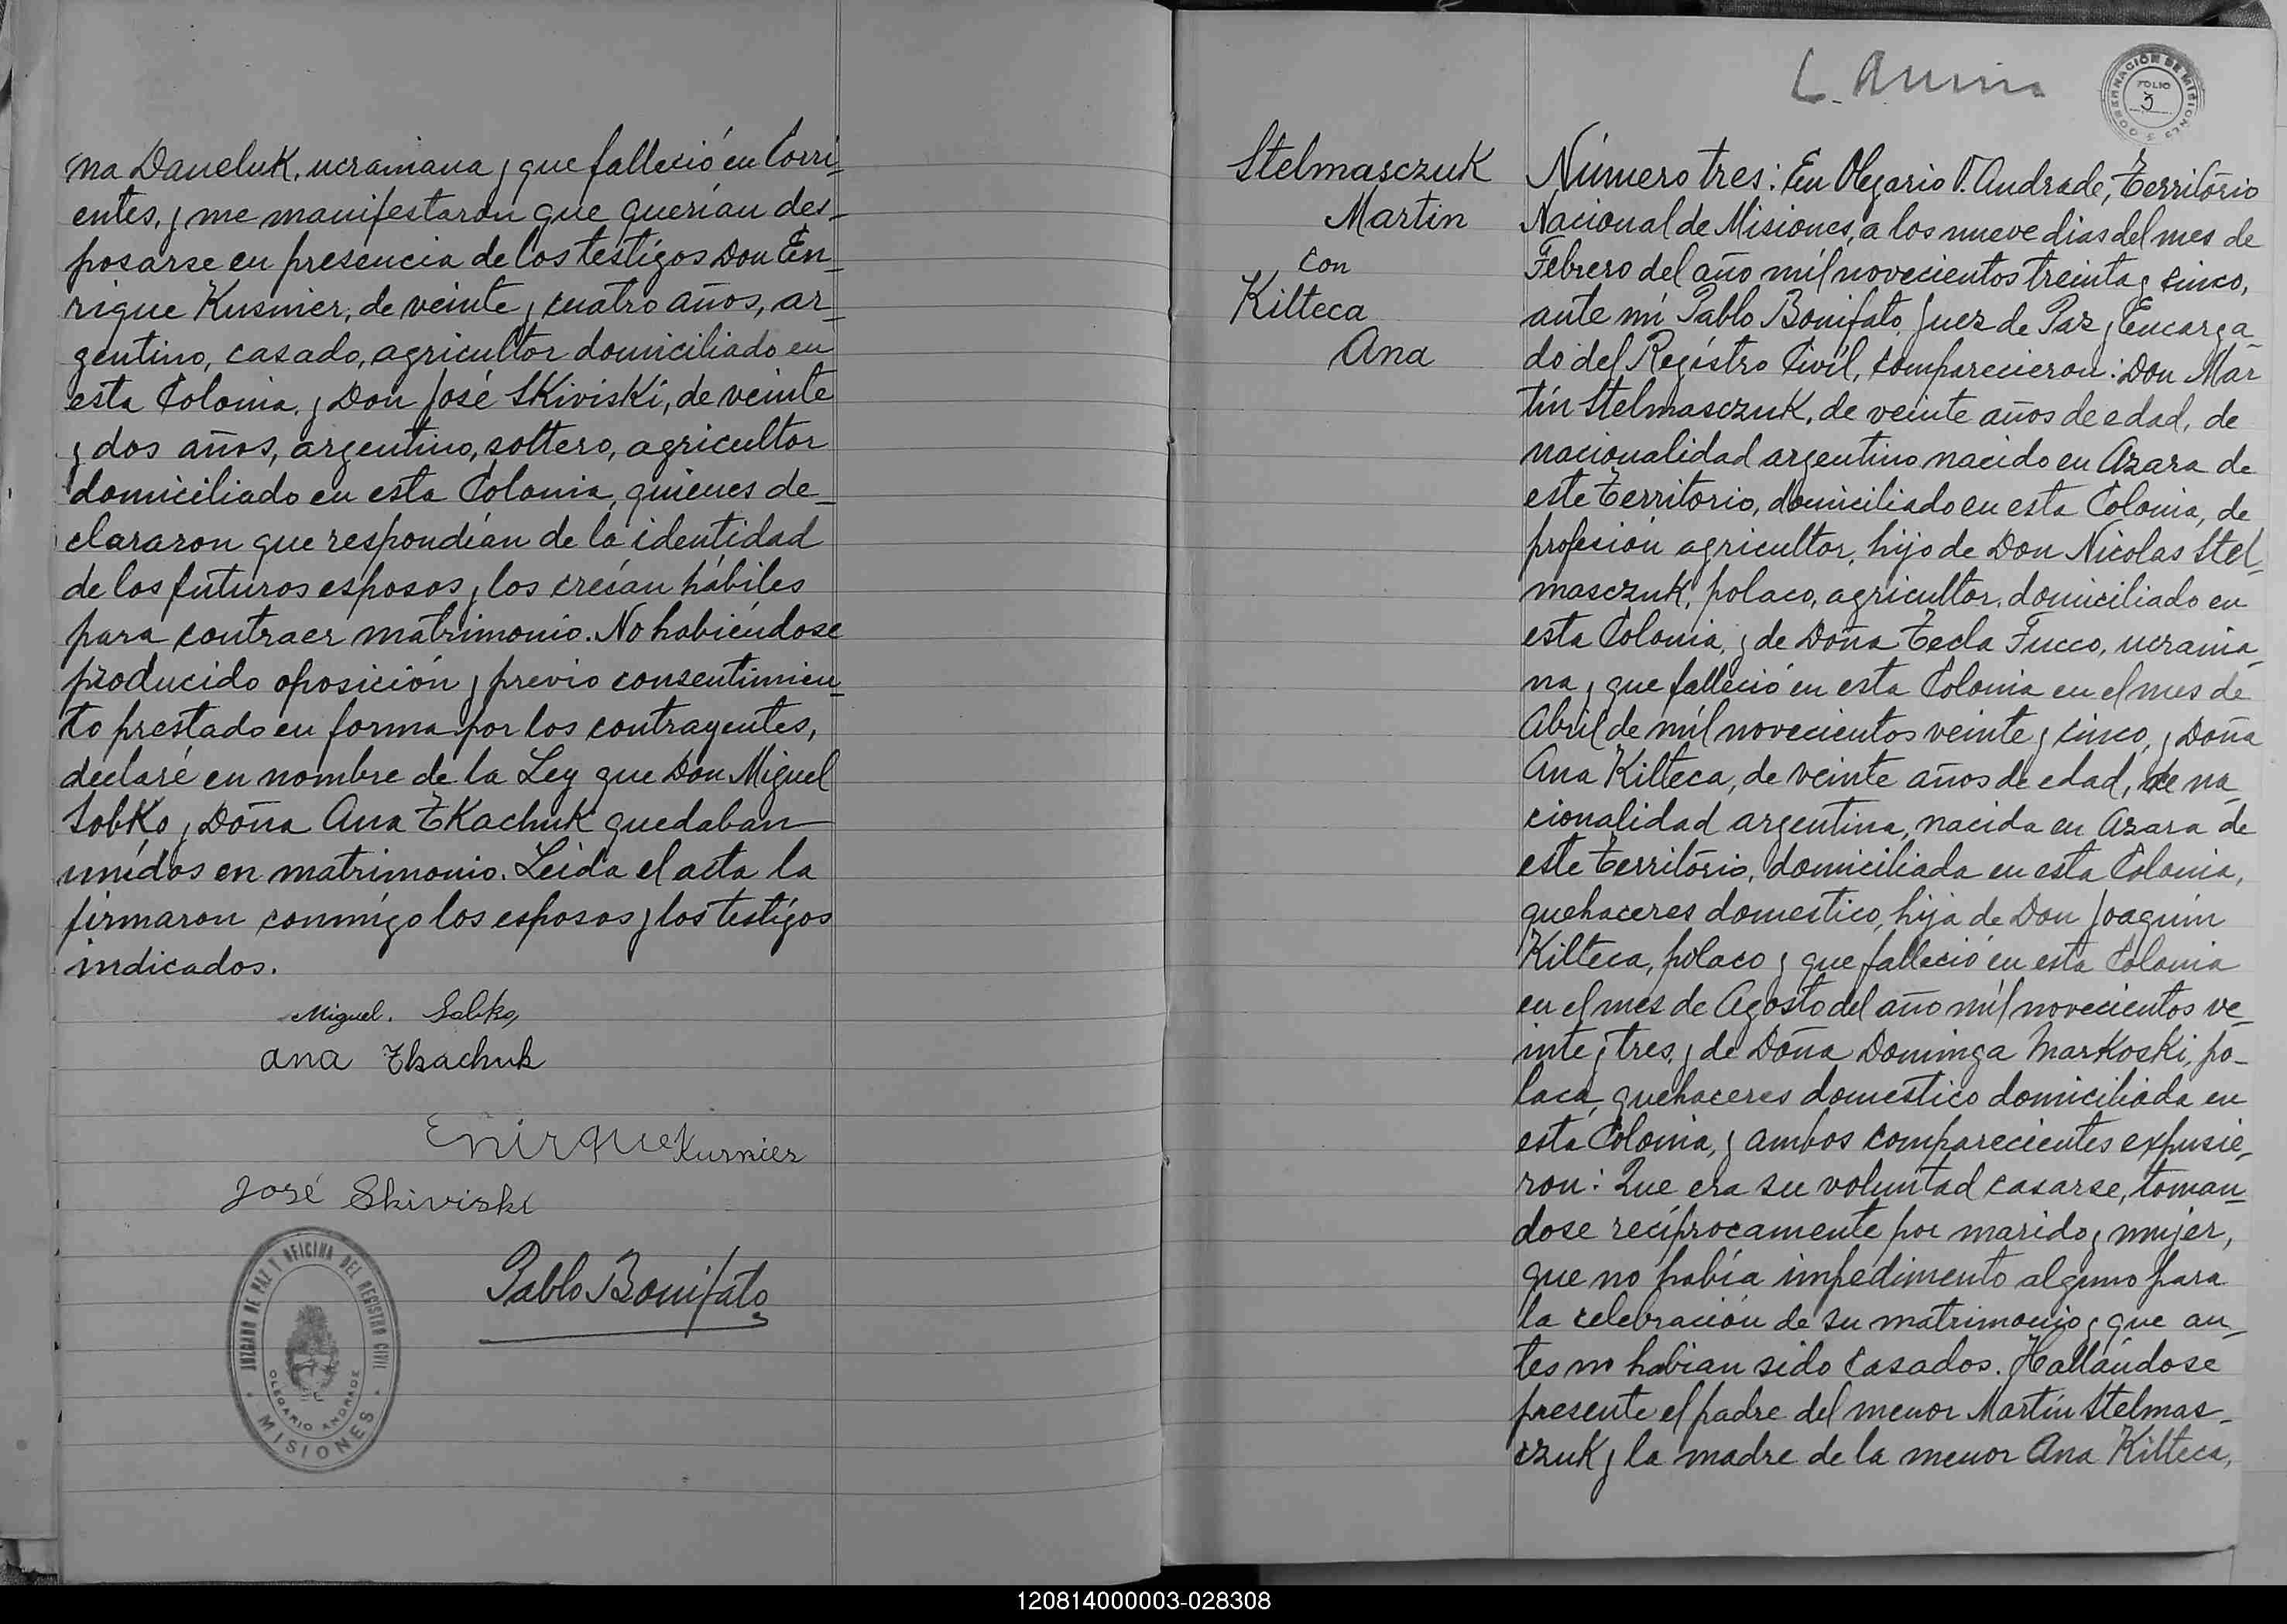 na Daneluk, ucraniana y que falleció en Corri-
entes, y me manifestaron que querían des-
posarse en presencia de los testigos Don En-
rique Kusnier, de veinte y cuatro años, ar-
gentino, casado, agricultor domiciliado en
esta Colonia, y Don José Skiviski, de veinte
y dos años, argentino, soltero, agricultor
domiciliado en esta Colonia, quienes de-
clararon que respondían de la identidad
de los futuros esposos y los creían hábiles
para contraer matrimonio. No habiéndose
producido oposición y previo consentimien-
to prestado en forma por los contrayentes,
declaré en nombre de la Ley que Don Miguel
Sobko y Doña Ana Tkachuk quedaban
unidos en matrimonio. Leida el acta la
firmaron conmigo los esposos y los testigos
indicados.
Miguel. Sobko,
ana Tkachuk
Enirque Kusnier
José Skiviski
Pablo Bonifato
JUZGADO DE PAZ Y OFICINA DEL REGISTRO CIVIL
OLEGARIO ANDRADE
MISIONES
GOBERNACIÓN DE MISIONES
FOLIO
3
Stelmasczuk
Martin
con
Kilteca
Ana
Número tres: En Olegario V. Andrade, Território
Nacional de Misiones, a los nueve dias del mes de
Febrero del año mil novecientos treinta y cinco,
ante mí Pablo Bonifato, Juez de Paz y Encarga-
do del Registro Civil, comparecieron: Don Mar
tín Stelmasczuk, de veinte años de edad, de
nacionalidad argentino nacido en Azara de
este Territorio, domiciliado en esta Colonia, de
profesión agricultor, hijo de Don Nicolas Stel-
masczuk, polaco, agricultor, domiciliado en
esta Colonia, y de Doña Tecla Fucco, ucrania-
na y que falleció en esta Colonia en el mes de
Abril de mil novecientos veinte y cinco, y Doña
Ana Kilteca, de veinte años de edad, de na-
cionalidad argentina, nacida en Azara de
este território, domiciliada en esta Colonia,
quehaceres domestico, hija de Don Joaquín
Kilteca, polaco y que falleció en esta Colonia
en el mes de Agosto del año mil novecientos ve-
inte y tres, y de Doña Dominga Markoski, po-
laca, quehaceres domestico domiciliada en
esta Colonia, y ambos comparecientes expusie-
ron: Que era su voluntad casarse, toman-
dose recíprocamente por marido y mujer,
que no había impedimento alguno para
la celebración de su matrimonio y que an-
tes no habian sido casados. Hallándose
presente el padre del menor Martín Stelmas-
czuk y la madre de la menor Ana Kilteca,
120814000003-028308